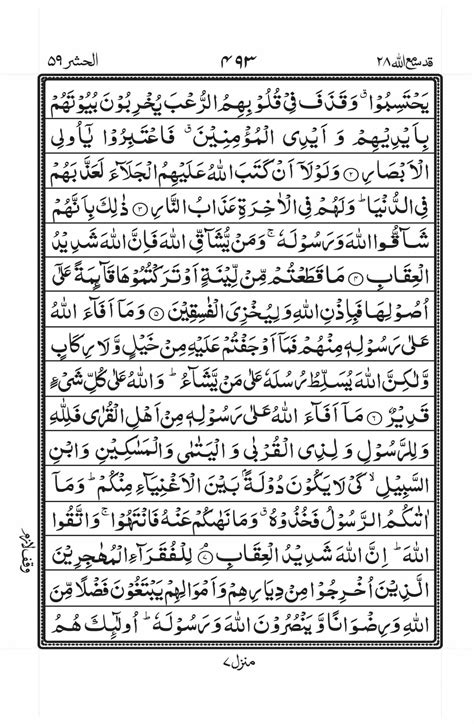 قد سمع الله ٢٨ ٤٩٣ الحشر ٥٩
يَحْتَسِبُوْا ۗ وَقَذَفَ فِيْ قُلُوْبِهِمُ الرُّعْبَ يُخْرِبُوْنَ بُيُوْتَهُمْ
بِاَيْدِيْهِمْ وَ اَيْدِي الْمُؤْمِنِيْنَ ۗ فَاعْتَبِرُوْا يٰۤاُولِي
الْاَبْصَارِ ۝٢ وَلَوْلَاۤ اَنْ كَتَبَ اللّٰهُ عَلَيْهِمُ الْجَلَآءَ لَعَذَّبَهُمْ
فِي الدُّنْيَا ؕ وَلَهُمْ فِي الْاٰخِرَةِ عَذَابُ النَّارِ ۝٣ ذٰلِكَ بِاَنَّهُمْ
شَآقُّوا اللّٰهَ وَرَسُوْلَهٗ ۚ وَمَنْ يُّشَآقِّ اللّٰهَ فَاِنَّ اللّٰهَ شَدِيْدُ
الْعِقَابِ ۝٤ مَا قَطَعْتُمْ مِّنْ لِّيْنَةٍ اَوْ تَرَكْتُمُوْهَا قَآئِمَةً عَلٰۤى
اُصُوْلِهَا فَبِاِذْنِ اللّٰهِ وَلِيُخْزِيَ الْفٰسِقِيْنَ ۝٥ وَمَاۤ اَفَآءَ اللّٰهُ
عَلٰى رَسُوْلِهٖ مِنْهُمْ فَمَاۤ اَوْجَفْتُمْ عَلَيْهِ مِنْ خَيْلٍ وَّلَا رِكَابٍ
وَّلٰكِنَّ اللّٰهَ يُسَلِّطُ رُسُلَهٗ عَلٰى مَنْ يَّشَآءُ ؕ وَاللّٰهُ عَلٰى كُلِّ شَيْءٍ
قَدِيْرٌ ۝٦ مَاۤ اَفَآءَ اللّٰهُ عَلٰى رَسُوْلِهٖ مِنْ اَهْلِ الْقُرٰى فَلِلّٰهِ
وَلِلرَّسُوْلِ وَ لِذِي الْقُرْبٰى وَ الْيَتٰمٰى وَالْمَسٰكِيْنِ وَابْنِ
السَّبِيْلِ ۙ كَيْ لَا يَكُوْنَ دُوْلَةًۢ بَيْنَ الْاَغْنِيَآءِ مِنْكُمْ ؕ وَمَاۤ
اٰتٰىكُمُ الرَّسُوْلُ فَخُذُوْهُ ۗ وَمَا نَهٰىكُمْ عَنْهُ فَانْتَهُوْا ۚ وَاتَّقُوا
اللّٰهَ ؕ اِنَّ اللّٰهَ شَدِيْدُ الْعِقَابِ ۝٧ لِلْفُقَرَآءِ الْمُهٰجِرِيْنَ
وقف لازم
الَّذِيْنَ اُخْرِجُوْا مِنْ دِيَارِهِمْ وَاَمْوَالِهِمْ يَبْتَغُوْنَ فَضْلًا مِّنَ
اللّٰهِ وَرِضْوَانًا وَّيَنْصُرُوْنَ اللّٰهَ وَرَسُوْلَهٗ ؕ اُولٰٓئِكَ هُمُ
منزل ٧